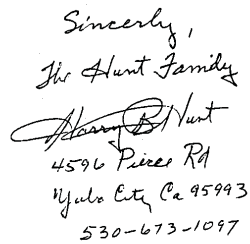 Sincerely,
The Hunt Family
Harry B Hunt
4596 Pierce Rd
Yuba City Ca 95993
530-673-1097